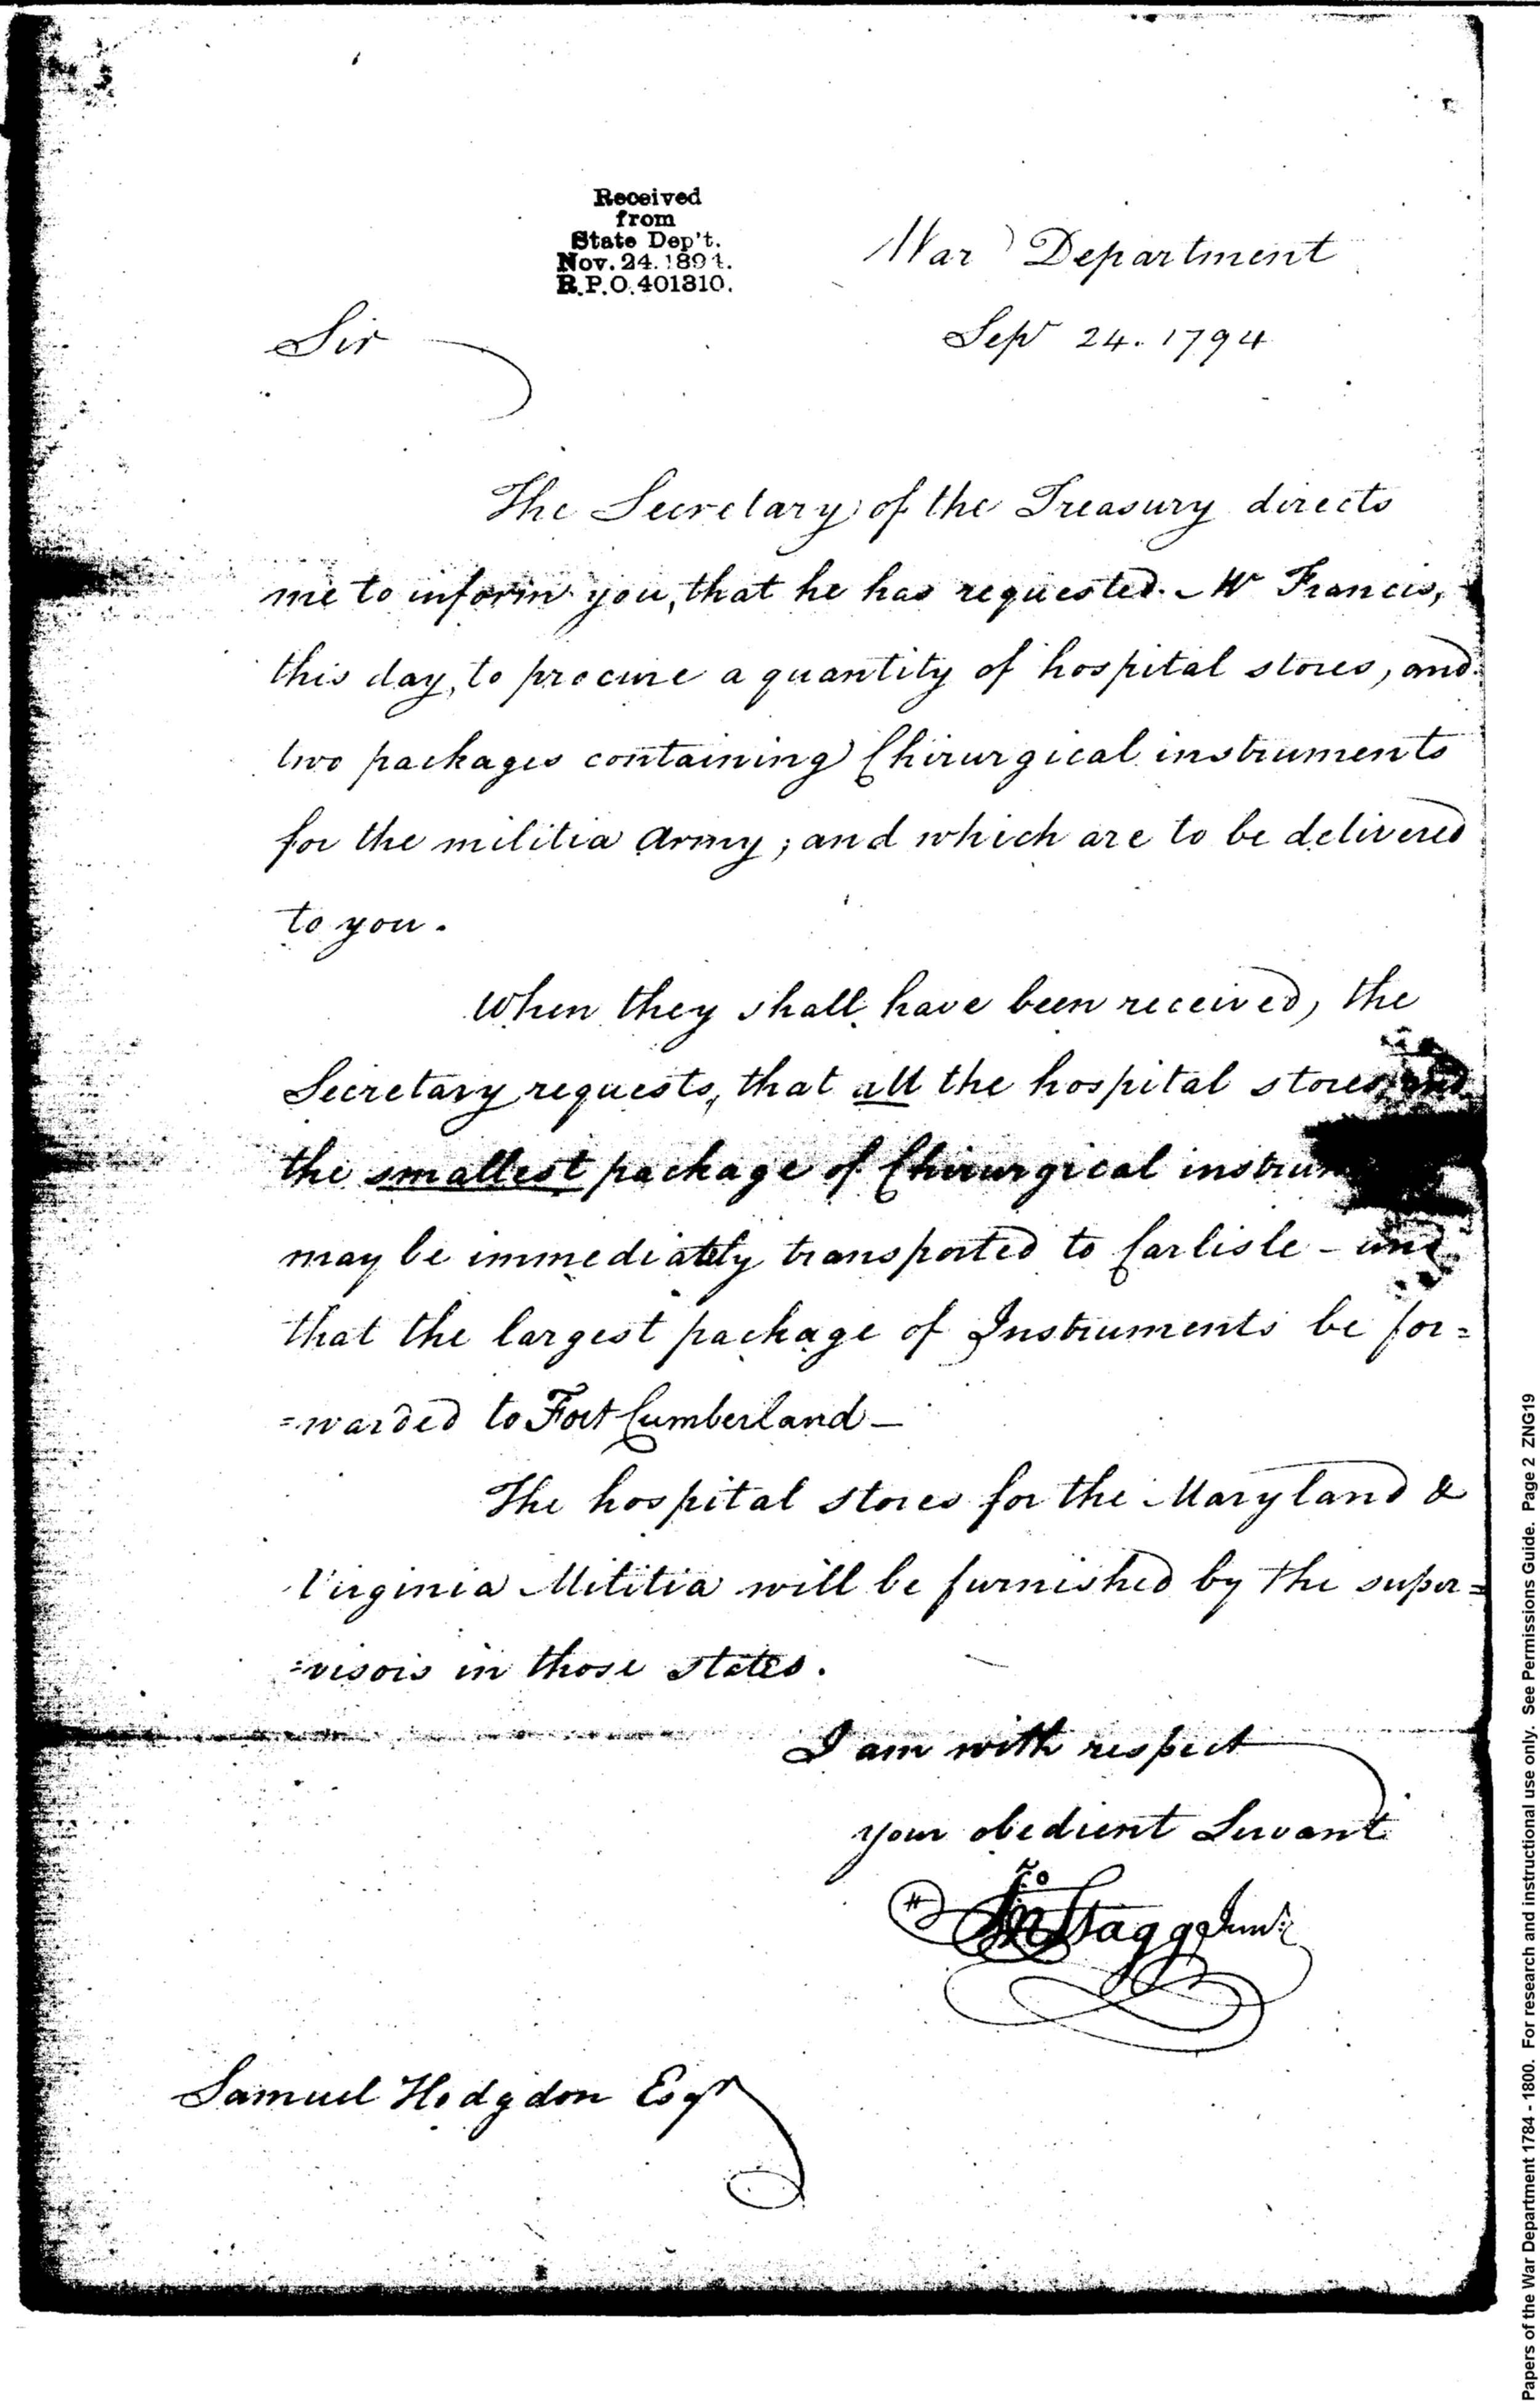 Received
from
State Dep't.
Nov. 24. 1894.
R.P.O. 401310.
War Department
Sepr 24. 1794
Sir
The Secretary of the Treasury directs
me to inform you, that he has requested Mr Francis,
this day, to procure a quantity of hospital stores, and
two packages containing Chirurgical instruments
for the militia army; and which are to be delivered
to you.
When they shall have been received, the
Secretary requests, that all the hospital stores, and
the smallest package of Chirurgical instrum
may be immediately transported to Carlisle - and
that the largest package of Instruments be for=
=warded to Fort Cumberland -
The hospital stores for the Maryland &
Virginia Militia will be furnished by the super=
=visors in those states.
I am with respect
your obedient Servant
Jno Stagg Junr
Samuel Hodgdon Esqr
Papers of the War Department 1784 - 1800. For research and instructional use only. See Permissions Guide. Page 2 ZNG19